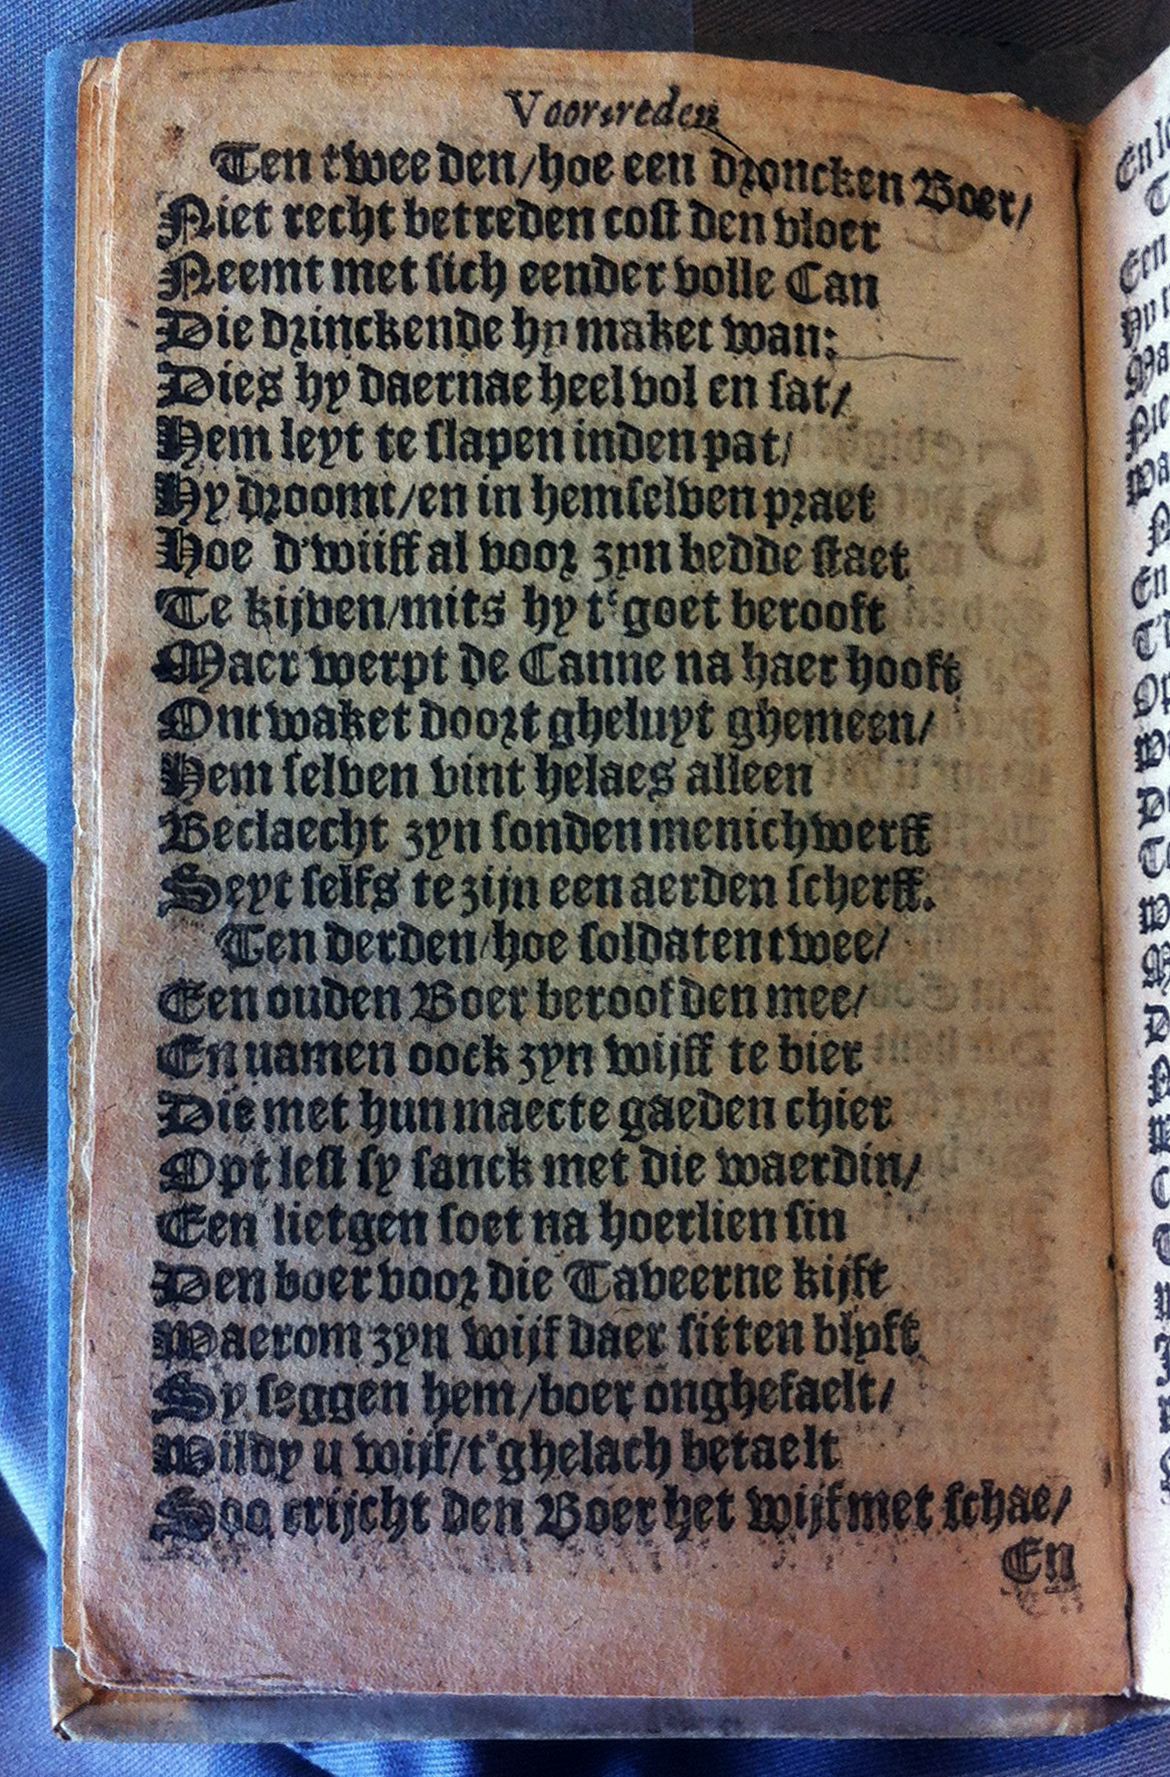 Voorsreden
Ten tweeden/hoe een droncken Boer/
Niet recht betreden cost den vloer
Neemt met sich eender volle Can
Die drinckende hy maket wan:
Dies hy daernae heel vol en sat/
Hem leyt te slapen inden pat/
Hy droomt/en in hemselven praet
Hoe d'wijff al voor zyn bedde staet
Te kijven/mits hy t'goet berooft
Maer werpt de Canne na haer hooft
Ontwaket doort gheluyt ghemeen/
Hem selven vint helaes alleen
Beclaecht zyn sonden menichwerff
Seyt selfs te zijn een aerden scherff.
Ten derden/hoe soldaten twee/
Een ouden Boer beroofden mee/
En uamen oock zyn wijff te bier
Die met hun maecte gaeden chier
Opt lest sy sanck met die waerdin/
Een lietgen soet na hoerlien sin
Den boer voor die Taveerne kijft
Waerom zyn wijf daer sitten blyft
Sy seggen hem/boer onghefaelt/
Wildy u wijf/t'ghelach betaelt
Soo crijcht den Boer het wijf met schae/
En